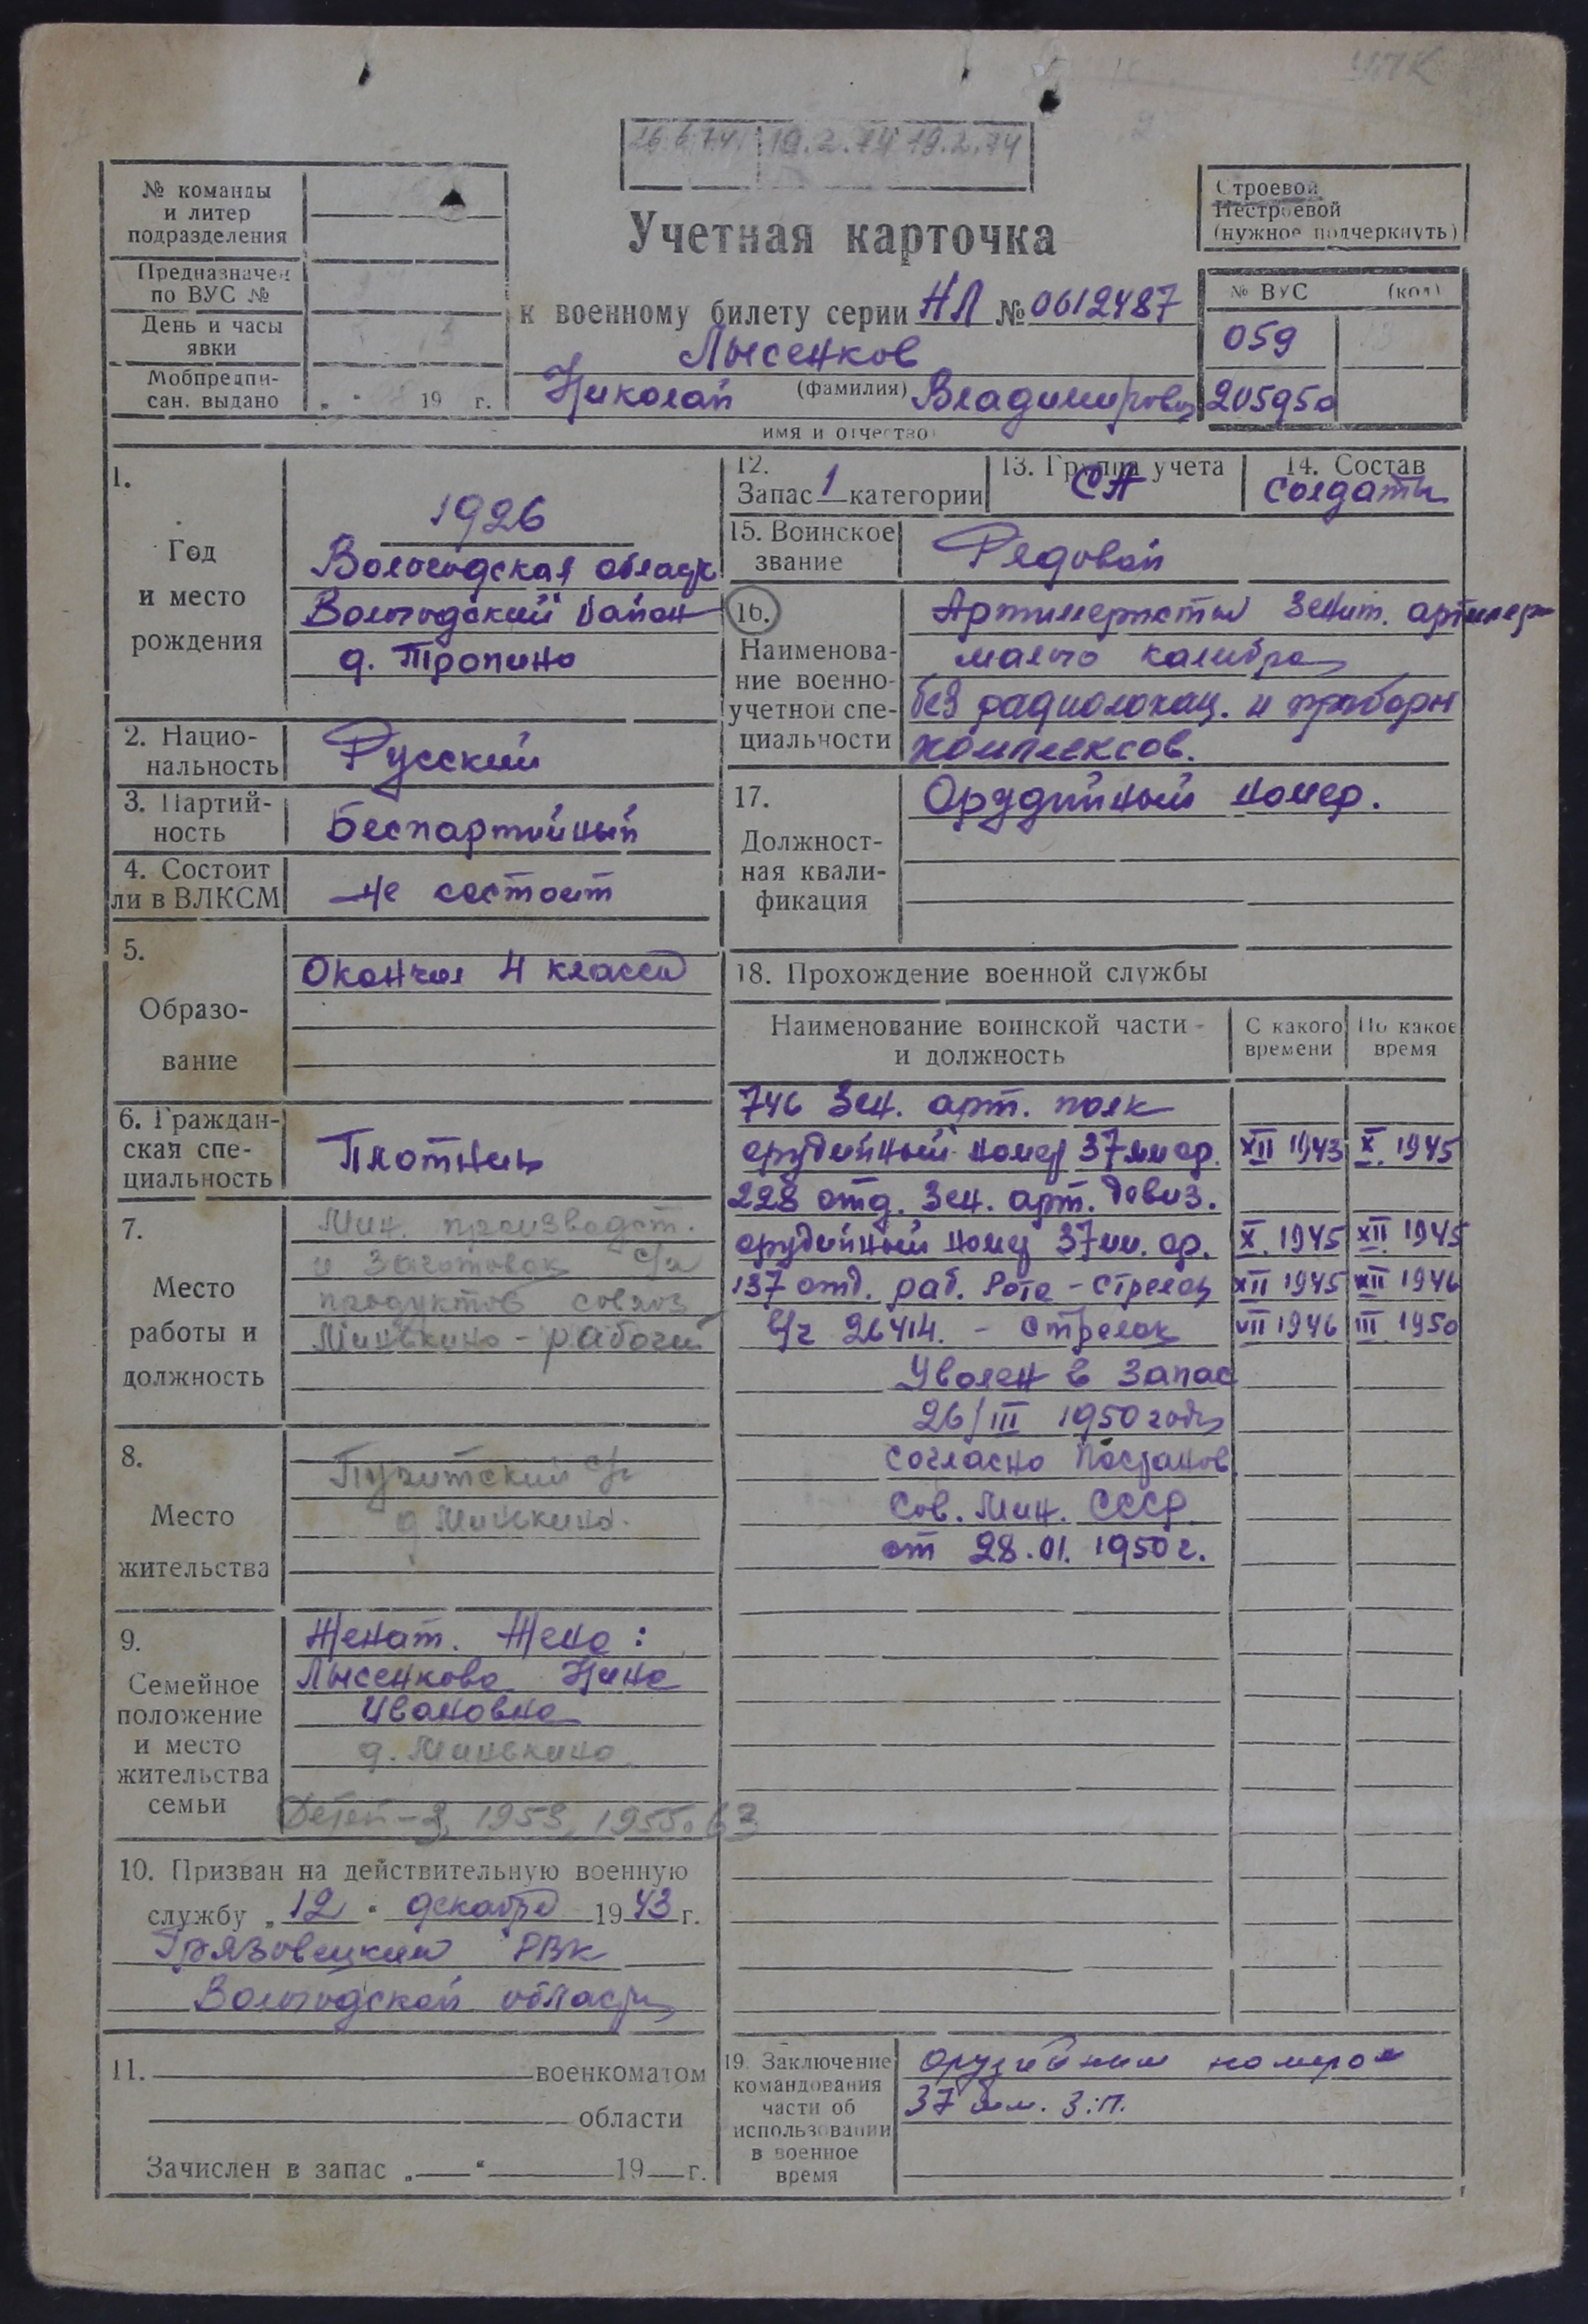 УПК
19.2.74 19.2.74
№ команды
и литер
подразделения
Предназначен
по ВУС №
День и часы
явки
Мобпредпи-
сан. выдано
„ “ 19 г.
Учетная карточка
к военному билету серии НЛ № 0612487
Лысенков
(фамилия)
Николай Владимирович
имя и отчество
Строевой
Нестроевой
(нужное подчеркнуть)
№ ВУС (код)
059
205950
1.
Год
и место
рождения
1926
Вологодская область
Вологодский район
д. Тропино
2. Нацио-
нальность
Русский
3. Партий-
ность
Беспартийный
4. Состоит
ли в ВЛКСМ
не состоит
5.
Образо-
вание
Окончил 4 класса
6. Граждан-
ская спе-
циальность
Плотник
7.
Место
работы и
должность
Мин. производст.
и заготовок с/х
продуктов совхоз
Минькино - рабочий
8.
Место
жительства
с/с
д Минькино.
9.
Семейное
положение
и место
жительства
семьи
Женат. Жена:
Лысенкова Нина
Ивановна
д. Минькино
Детей - 3, 1953, 1955, 63
10. Призван на действительную военную
службу „12“ декабря 1943 г.
Грязовецким РВК
Вологодской области
11. военкоматом
области
Зачислен в запас „ “ 19 г.
12.
Запас 1 категории
13. Группа учета
СА
14. Состав
солдаты
15. Воинское
звание
Рядовой
16.
Наименова-
ние военно-
учетной спе-
циальности
Артиллеристы зенит. артиллер
малого калибра
без радиолокац. и приборн
комплексов.
17.
Должност-
ная квали-
фикация
Орудийный номер.
18. Прохождение военной службы
Наименование воинской части -
и должность
С какого
времени
По какое
время
746 Зен. арт. полк
орудийный номер 37 мм ор. XII 1943 X. 1945
228 отд. Зен. арт. дивиз.
орудийный номер 37 мм. ор. X. 1945 XII 1945
137 отд. раб. Рота - Стрелок XII 1945 VII 1946
в/ч 26414. - Стрелок VII 1946 III 1950
Уволен в запас
26/III 1950 года
согласно Постанов
Сов. Мин. СССР
от 28.01. 1950 г.
19. Заключение
командования
части об
использовании
в военное
время
орудийным номером
37 мм. З.П.